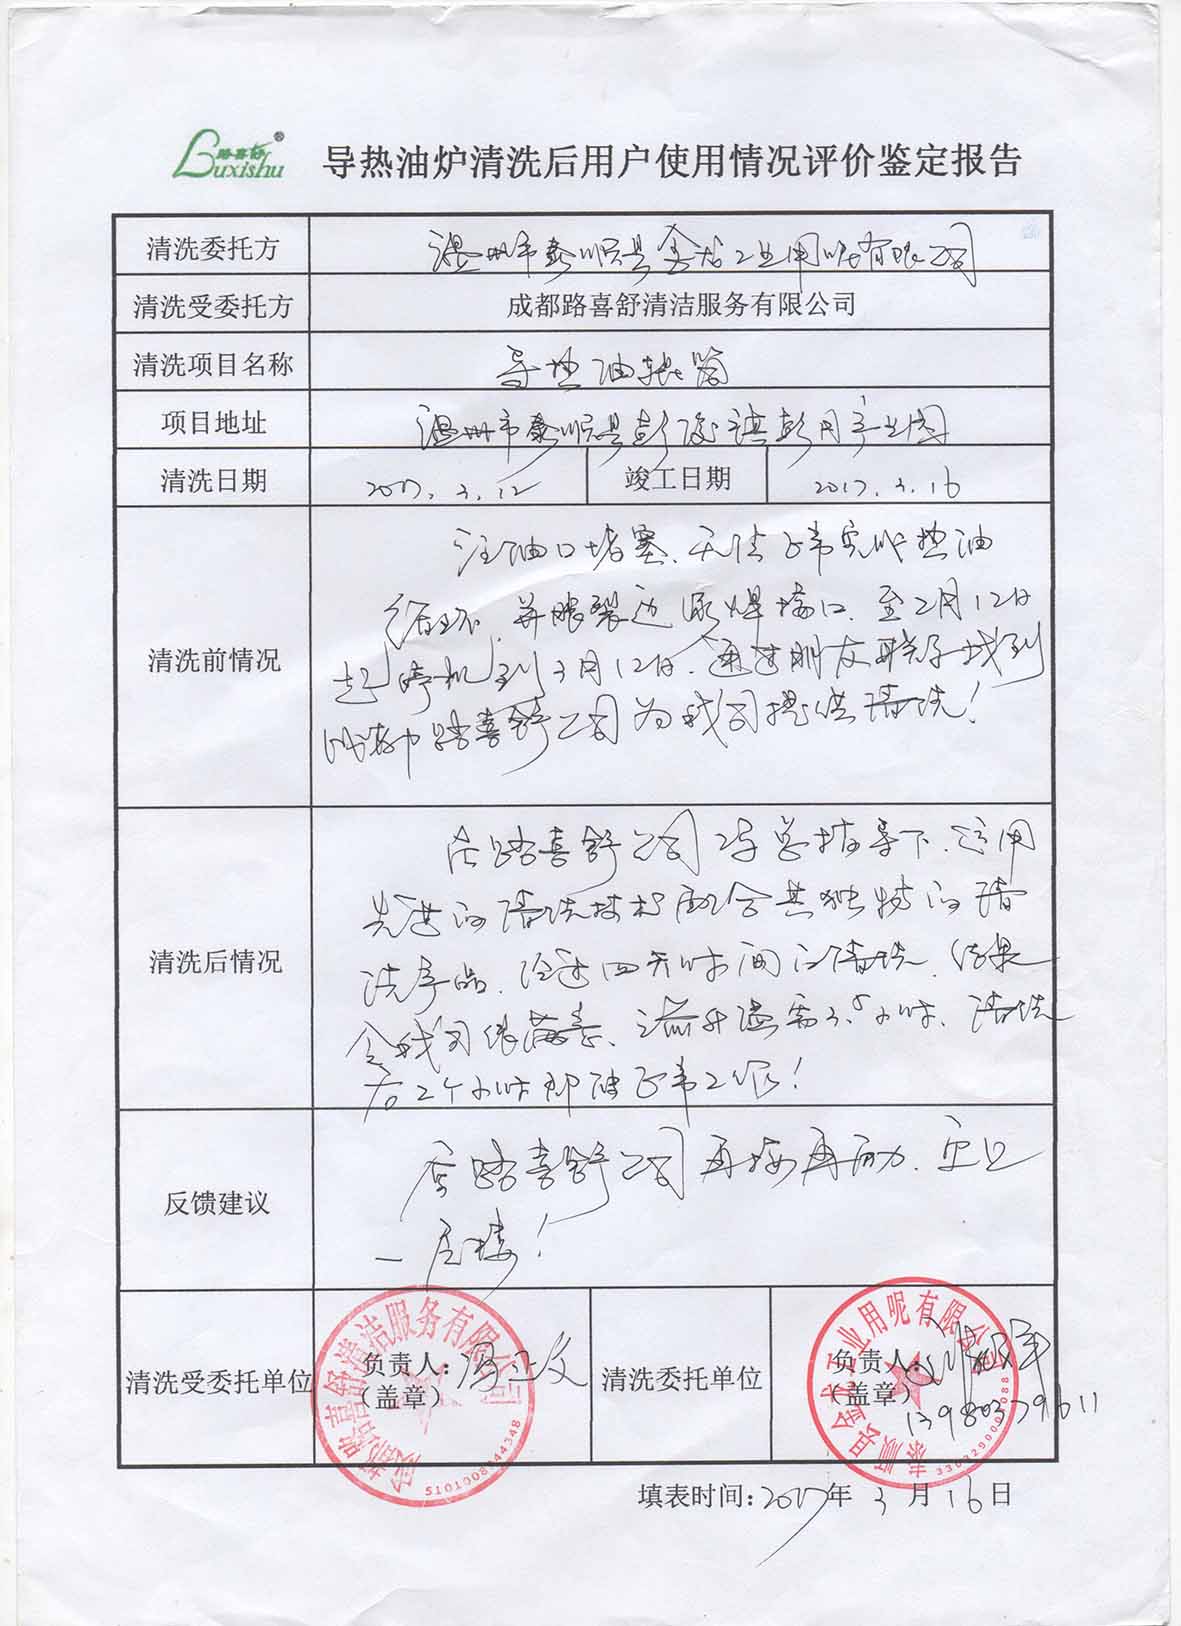 路喜舒®
Luxishu
导热油炉清洗后用户使用情况评价鉴定报告
清洗委托方 温州市泰顺县金龙工业用呢有限公司
清洗受委托方 成都路喜舒清洁服务有限公司
清洗项目名称 导热油辊筒
项目地址 温州市泰顺县彭溪镇彭月产业园
清洗日期 2017.3.12 竣工日期 2017.3.16
清洗前情况
注油口堵塞、无法正常完成热油
循环,并胀裂边缘焊接口,至2月12日
起停机到3月12日.通过朋友联系找到
成都路喜舒公司为我司提供清洗!
清洗后情况
在路喜舒公司 总指导下,运用
先进的清洗技术配合其独特的清
洗产品,经过四天时间的清洗,结果
令我司很满意、 升温需3.5小时、清洗
后2个小时即能正常工作!
反馈建议
希路喜舒公司再接再厉,更上
一层楼!
清洗受委托单位
负责人:冯立文
(盖章)
成都路喜舒清洁服务有限公司
清洗委托单位
负责人:
(盖章)
13980379611
泰顺县金龙工业用呢有限公司
填表时间:2017年3月16日